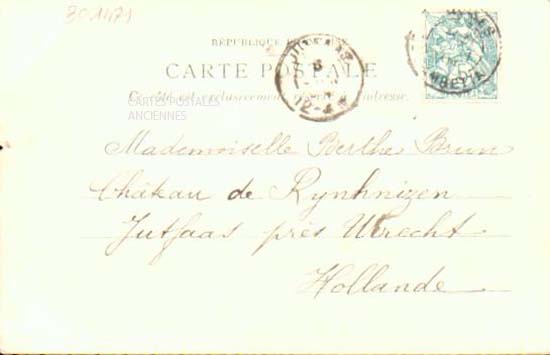 301471
RÉPUBLIQUE
CARTE POSTALE
Ce côté est exclusivement à l'adresse.
CARTES POSTALES
ANCIENNES
JUTFAAS
Mademoiselle Berthe Brun
Château de Rynhnizen
Jutfaas près Utrecht
Hollande